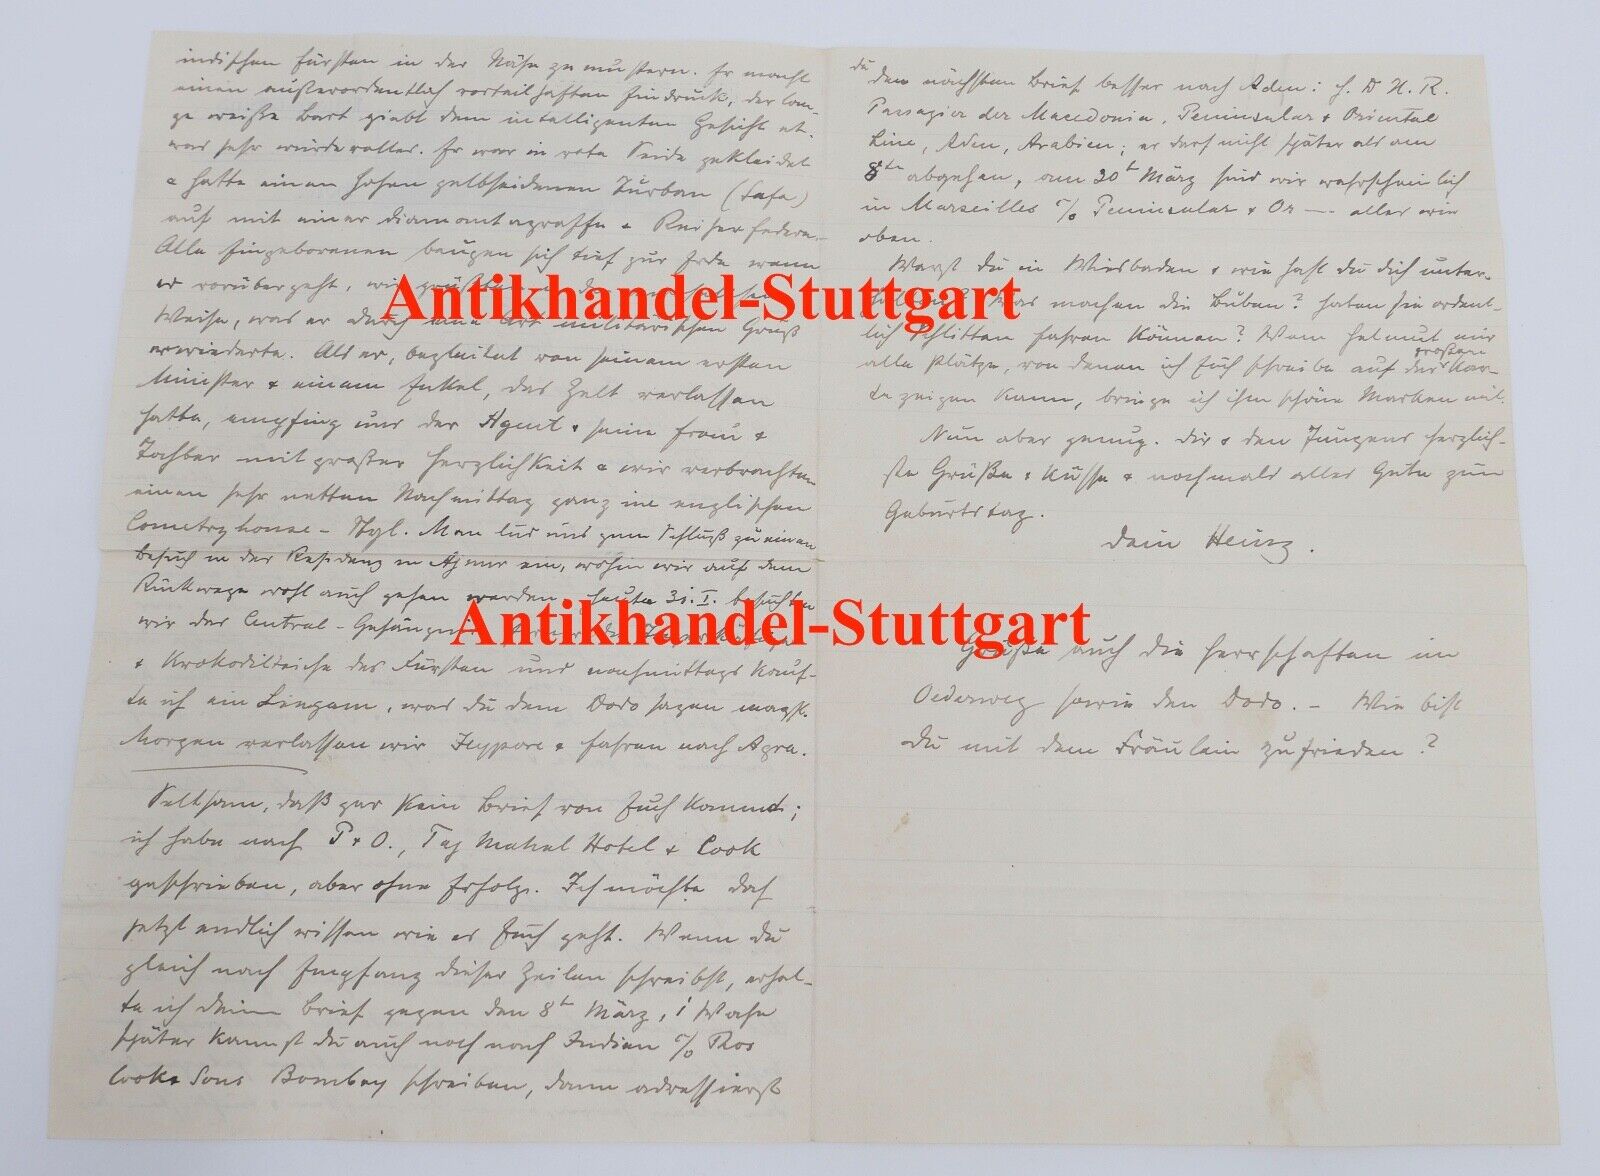 indischen Fürsten in der Nähe zu mustern. Er macht
einen außerordentlich vorteilhaften Eindruck, der lan-
ge weiße Bart giebt dem intelligenten Gesicht et-
was sehr würdevolles. Er war in rote Seide gekleidet
& hatte einen hohen gelbseidenen Turban (Safa)
auf mit einer Diamantagraffe & Reiherfedern.
Alle Eingeborenen beugen sich tief zur Erde wenn
er vorübergeht, wir grüßten in der
Weise, was er durch eine Art militärischen Gruß
erwiederte. Als er, begleitet von seinem ersten
Minister & einem Enkel, das Zelt verlassen
hatte, empfing uns der Agent & seine Frau &
Tochter mit großer Herzlichkeit & wir verbrachten
einen sehr netten Nachmittag ganz im englischen
Countryhouse-Styl. Man lud uns zum Schluß zu einem
Besuch in der Residenz in Ajmir ein, wohin wir auf dem
Rückwege wohl auch gehen werden. Heute 31. I. besuchten
wir das Central-Gefängnis,
& Krokodilteiche des Fürsten und nachmittags kauf-
te ich ein Lingam, was du dem Dodo sagen magst.
Morgen verlassen wir Jeypore & fahren nach Agra.
Seltsam, daß gar kein Brief von Euch kommt;
ich habe nach P & O., Taj Mahal Hotel & Cook
geschrieben, aber ohne Erfolg. Ich möchte doch
jetzt endlich wissen wie es Euch geht. Wenn du
gleich nach Empfang dieser Zeilen schreibst, erhal-
te ich deinen Brief gegen den 8t März, 1 Woche
später kannst du auch noch nach Indien c/o Thos
Cook & Sons Bombay schreiben, dann adressierst
du
den nächsten Brief besser nach Aden: H. R.
Passagier der Macedonia, Peninsular & Oriental
Line, Aden, Arabien; er darf nicht später als am
8ten abgehen, am 20t März sind wir wahrscheinlich
in Marseilles c/o Peninsular & Or — alles wie
oben.
Warst du in Wiesbaden & wie hast du dich unter-
halten? Was machen die Buben? Haben sie ordent-
lich Schlitten fahren können? Wenn Helmut mir
alle Plätze, von denen ich Euch schreibe auf der großen Kar-
te zeigen kann, bringe ich ihm schöne Marken mit.
Nun aber genug. Dir & den Jungens herzlich-
ste Grüße & Küsse & nochmals alles Gute zum
Geburtstag.
Dein Heinz.
Grüße auch die Herrschaften im
Oederweg sowie den Dodo. – Wie bist
du mit dem Fräulein zufrieden?
Antikhandel-Stuttgart
Antikhandel-Stuttgart